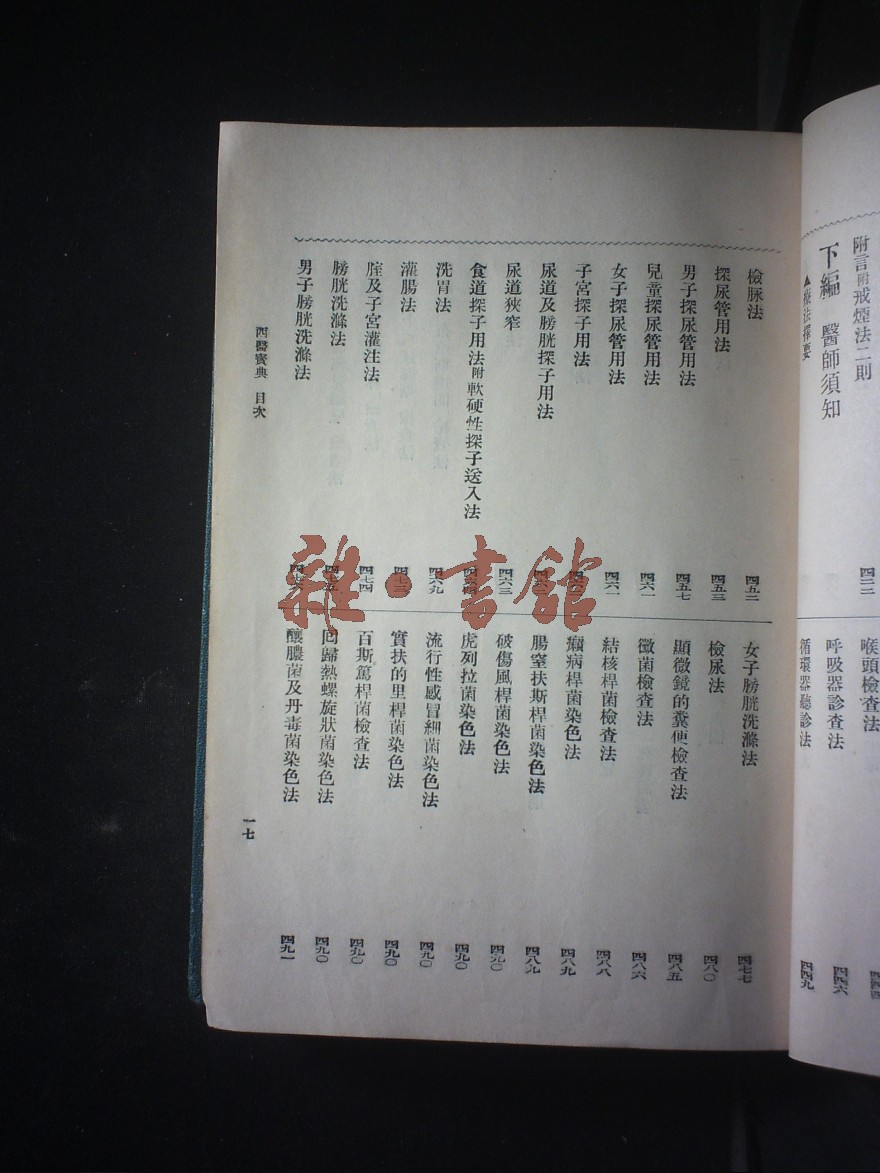 附言附戒煙法二則
四二二
喉頭檢查法
下編 醫師須知
呼吸器診查法
四四六
循環器聽診法
四四九
檢脈法
四五二
探尿管用法
四五三
男子探尿管用法
四五七
兒童探尿管用法
四六一
女子探尿管用法
四六一
子宮探子用法
尿道及膀胱探子用法
尿道狹窄
四六三
食道探子用法附軟硬性探子送入法
洗胃法
四六九
灌腸法
四七三
腟及子宮灌注法
四七四
膀胱洗滌法
四七五
男子膀胱洗滌法
女子膀胱洗滌法
四七七
檢尿法
四八〇
顯微鏡的糞便檢查法
四八五
黴菌檢查法
四八六
結核桿菌檢查法
四八八
癩病桿菌染色法
四八九
腸窒扶斯桿菌染色法
四八九
破傷風桿菌染色法
四九〇
虎列拉菌染色法
四九〇
流行性感冒細菌染色法
四九〇
實扶的里桿菌染色法
四九〇
百斯篤桿菌檢查法
四九〇
回歸熱螺旋狀菌染色法
四九〇
釀膿菌及丹毒菌染色法
四九一
西醫寶典 目次
一七
雜·書館